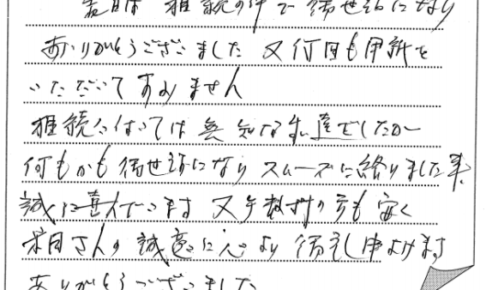 相続の中で御世話になり
ありがとうございました 又何回も電話を
いただいてすみません
相続に付いては無知な私達でしたが
何もかも御世話になりスムーズに終りました事
誠に喜んでいます 又手数料の方も安く
さんの誠意に心より御礼申上げます
ありがとうございました